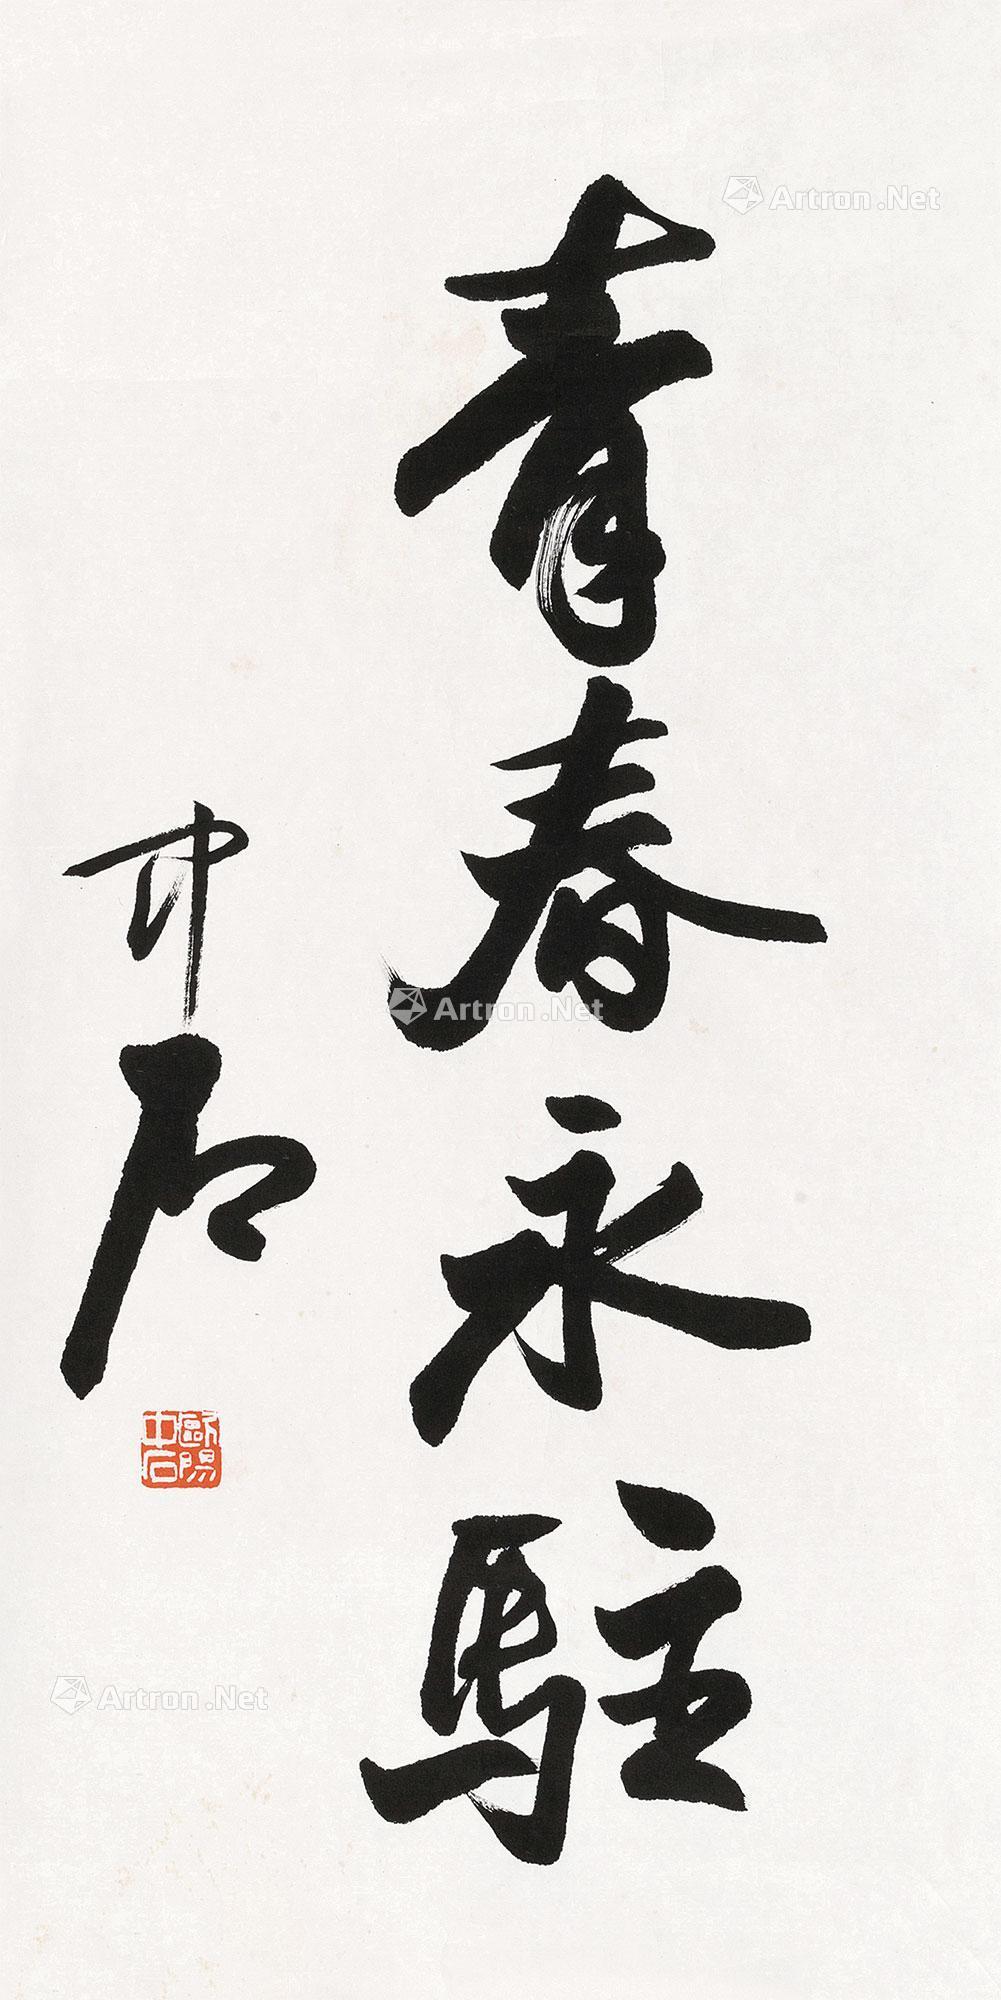 青春永駐
中石
歐陽中石
Artron.Net
Artron.Net
Artron.Net